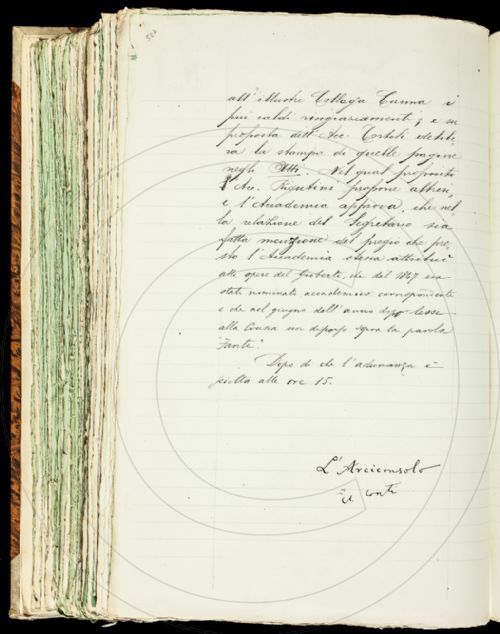 all'illustre Collega Canna i
più caldi ringraziamenti; e su
proposta dell'Acc. Tortoli delibe
ra la stampa di quelle pagine
negli Atti. Nel qual proposito
l'Acc. Rigutini propone altresì,
e l'Accademia approva, che nel
la relazione del Segretario sia
fatta menzione del pregio che pre
sto l'Accademia stessa attribuì
alle opere del Gioberti, che dal 1847 era
stato nominato accademico corrispondente
e che nel giugno dell'anno dopo lesse
alla Crusca un discorso sopra la parola
"Fante".
Dopo di che l'adunanza è
sciolta alle ore 15.
L'Arciconsolo
A. Conti